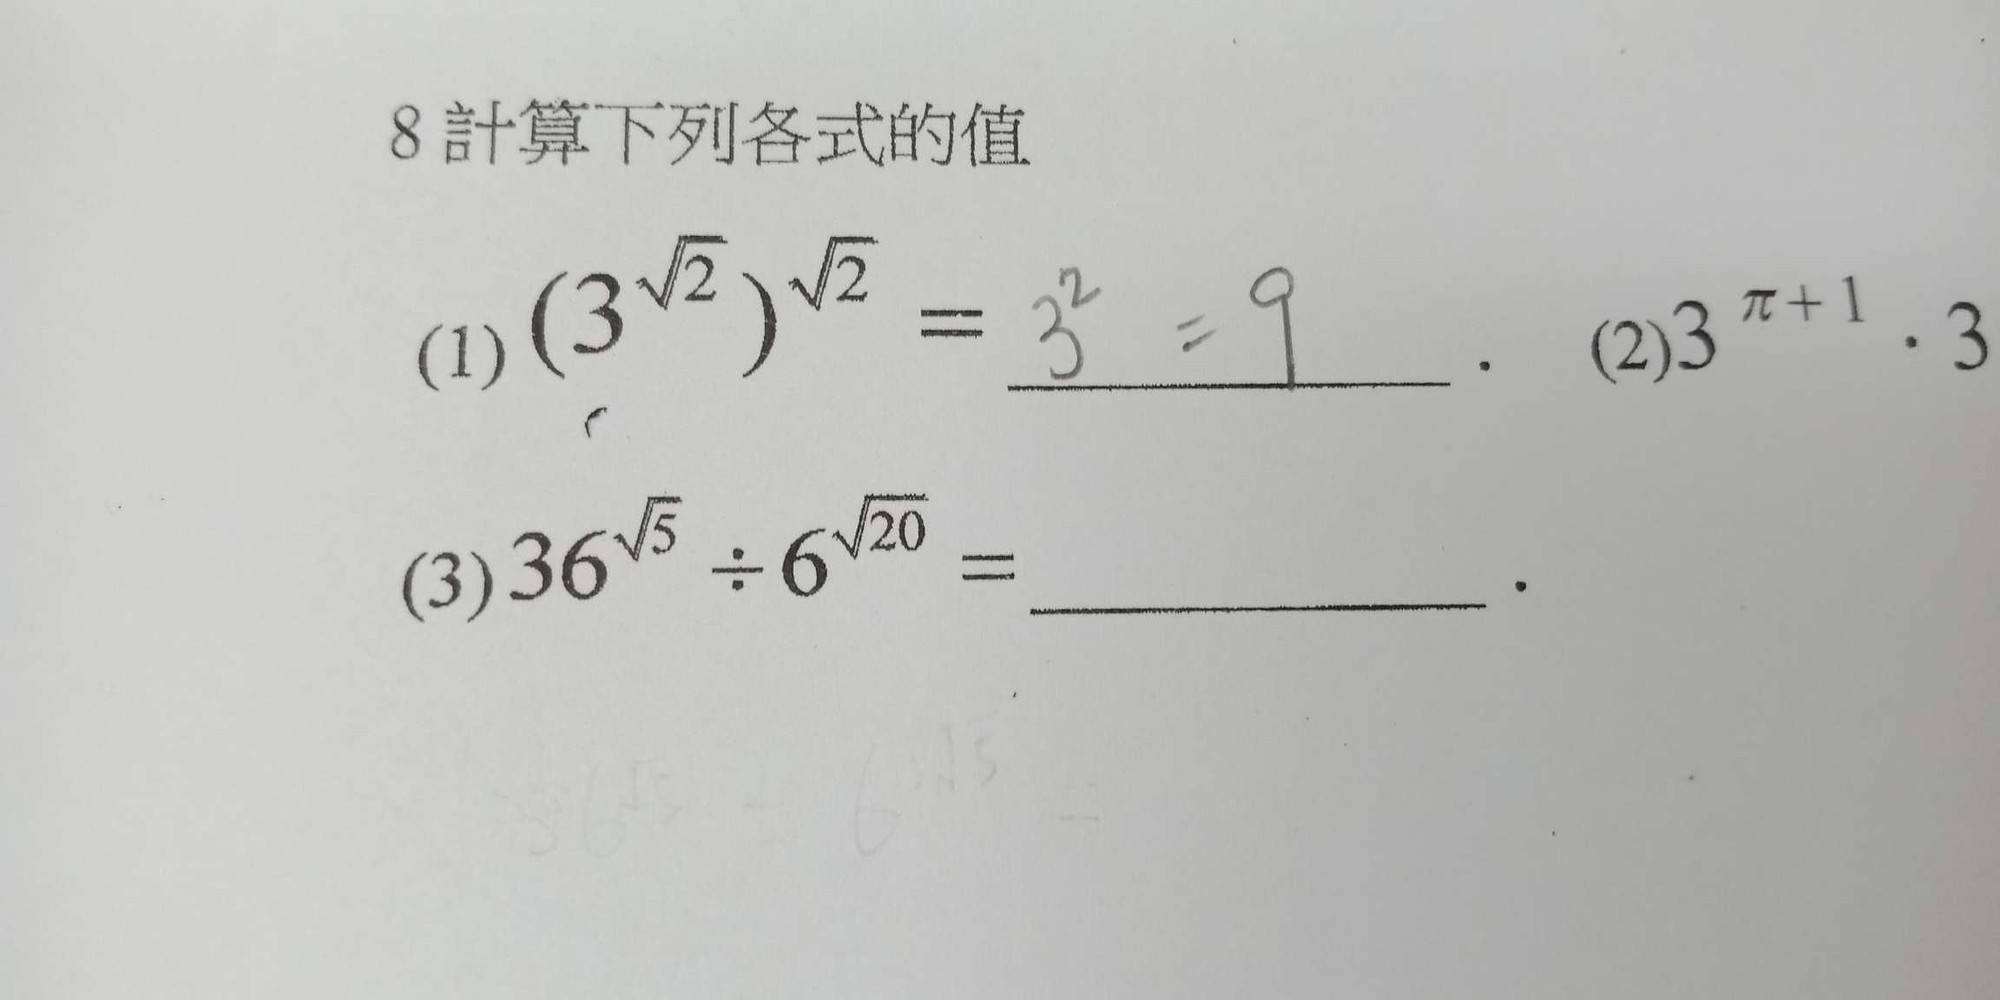 8 計算下列各式的值
(1) (3^{√2})^{√2} = 3² = 9 . (2) 3^{π+1} · 3
(3) 36^{√5} ÷ 6^{√20} = ________ .